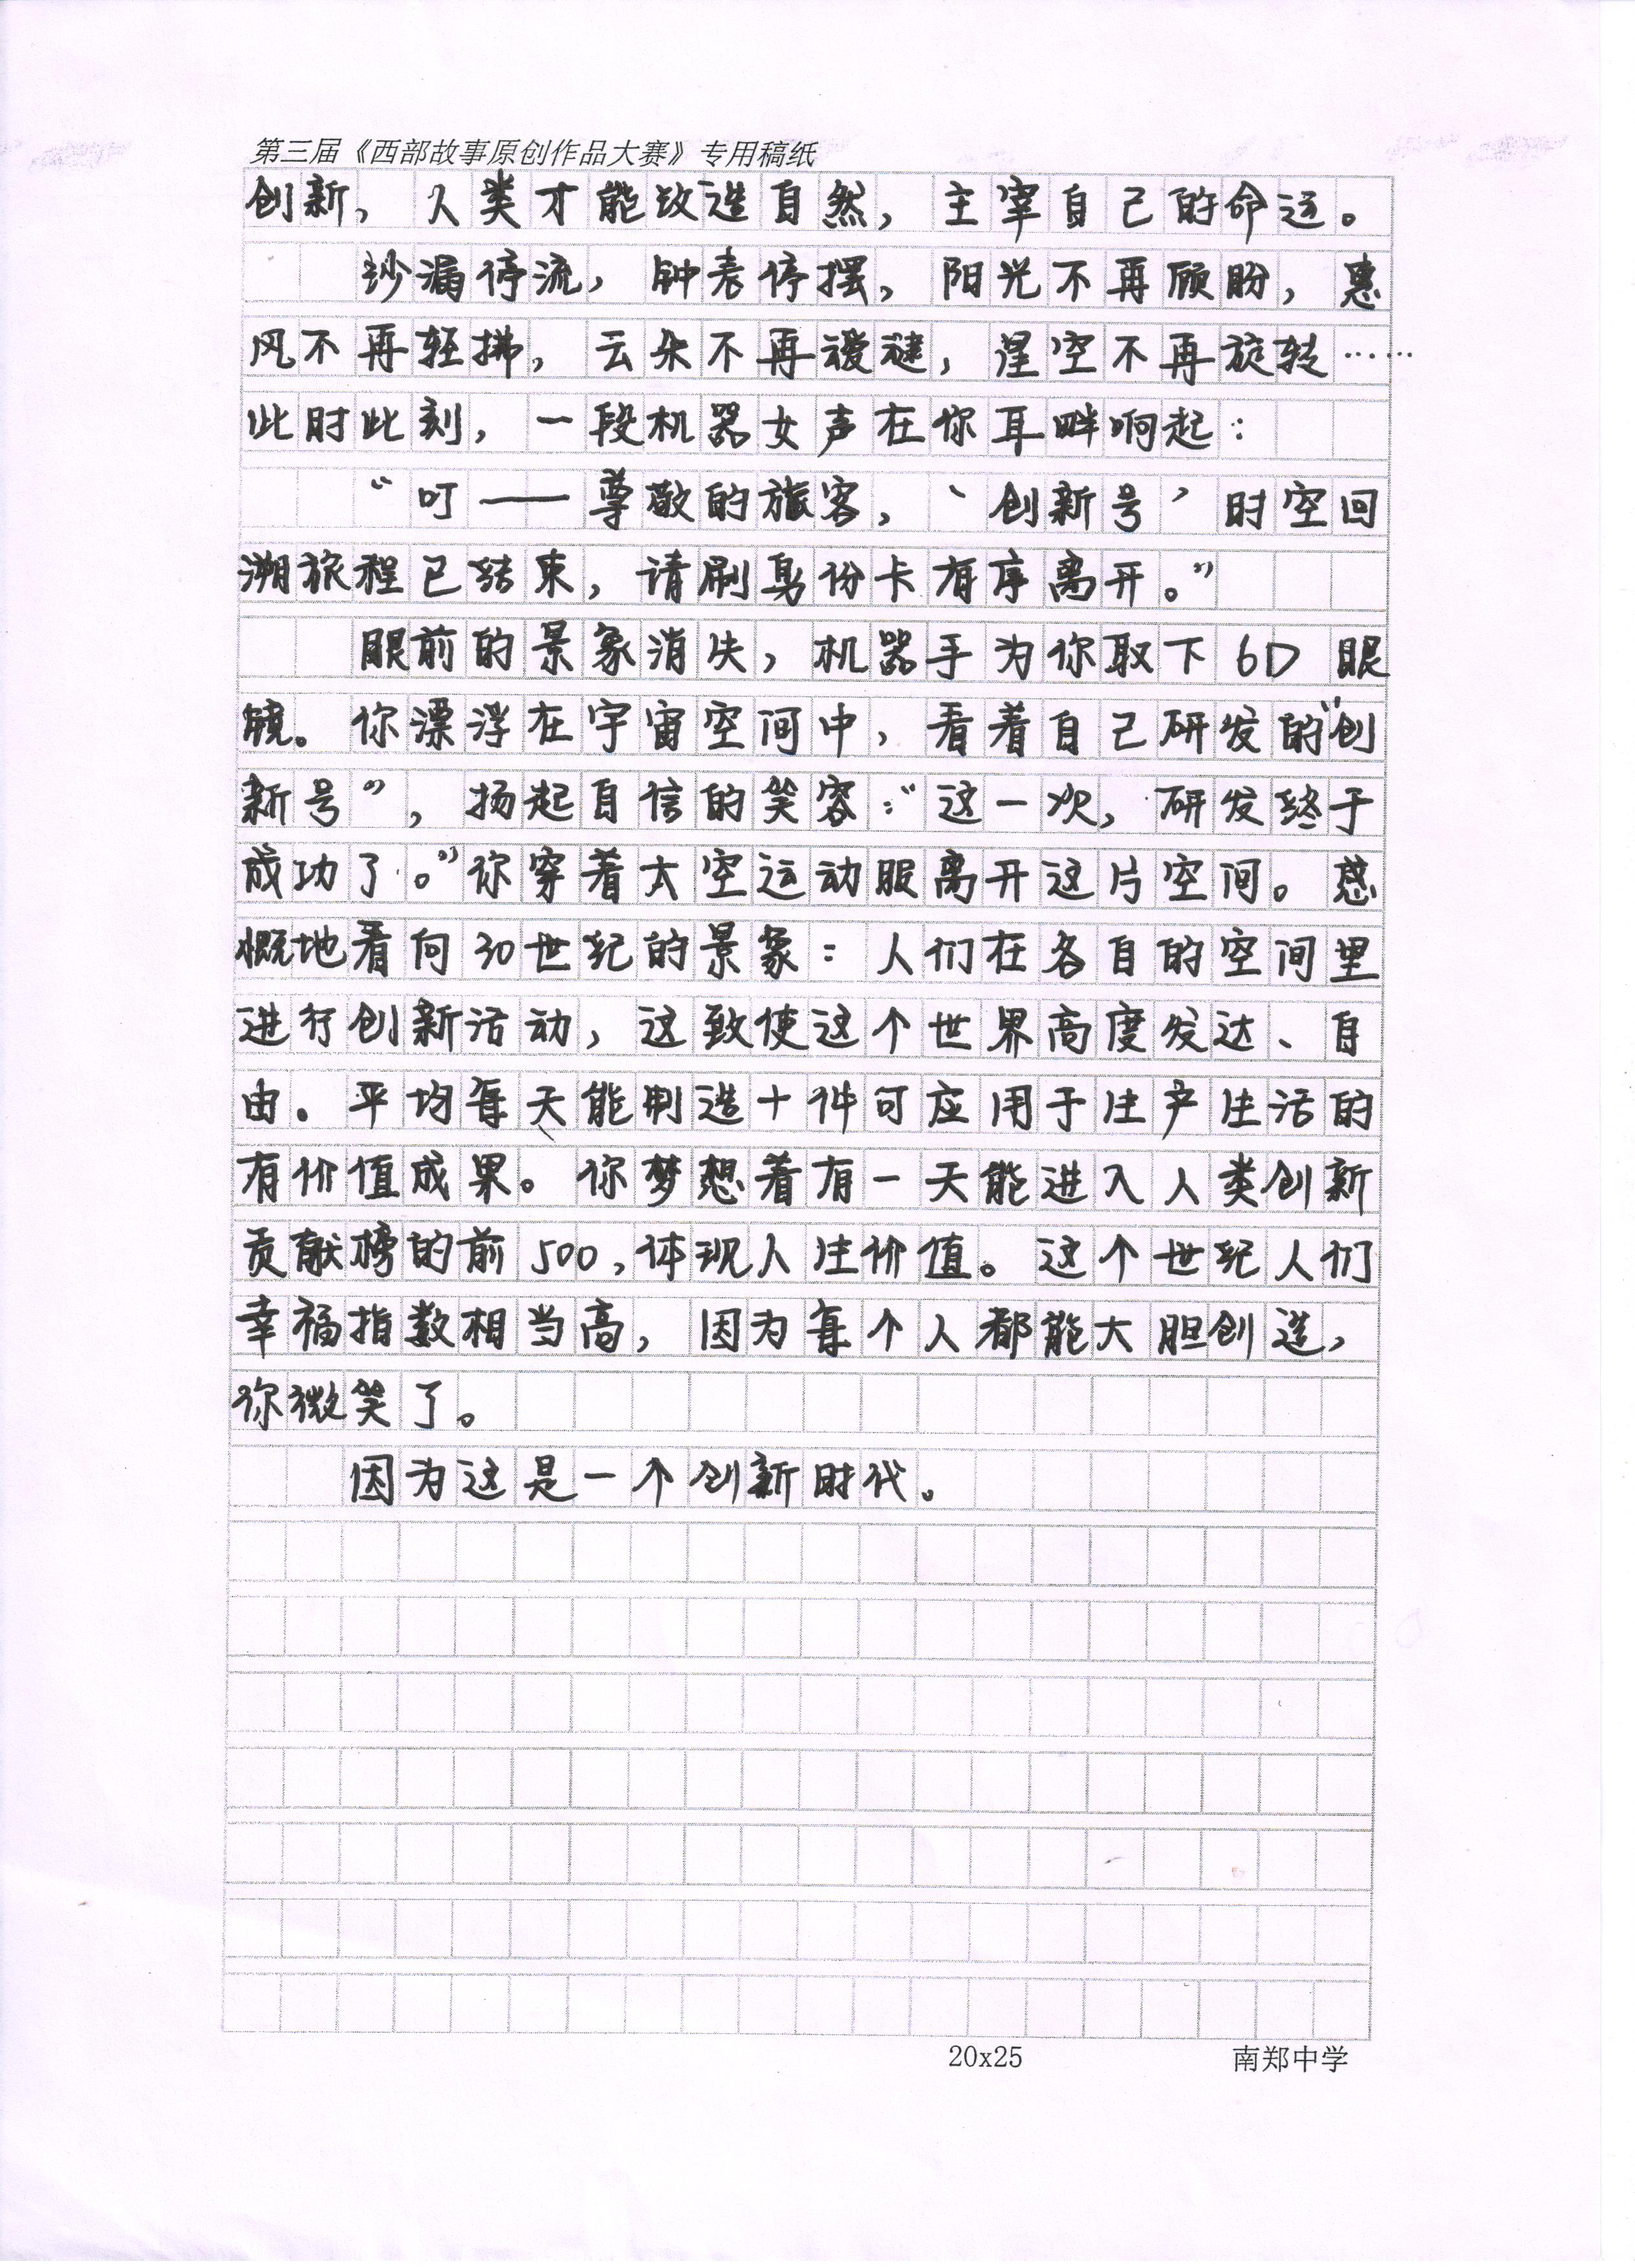 第三届《西部故事原创作品大赛》专用稿纸
创新，人类才能改造自然，主宰自己的命运。
沙漏停流，钟表停摆，阳光不再顾盼，惠
风不再轻拂，云朵不再叆叇，星空不再旋转……
此时此刻，一段机器女声在你耳畔响起：
“叮——尊敬的旅客，‘创新号’时空回
溯旅程已结束，请刷身份卡有序离开。”
眼前的景象消失，机器手为你取下6D眼
镜。你漂浮在宇宙空间中，看着自己研发的“创
新号”，扬起自信的笑容：“这一次，研发终于
成功了。”你穿着太空运动服离开这片空间。感
慨地看向30世纪的景象：人们在各自的空间里
进行创新活动，这致使这个世界高度发达、自
由。平均每天能制造十件可应用于生产生活的
有价值成果。你梦想着有一天能进入人类创新
贡献榜的前500，体现人生价值。这个世纪人们
幸福指数相当高，因为每个人都能大胆创造，
你微笑了。
因为这是一个创新时代。
20x25 南郑中学